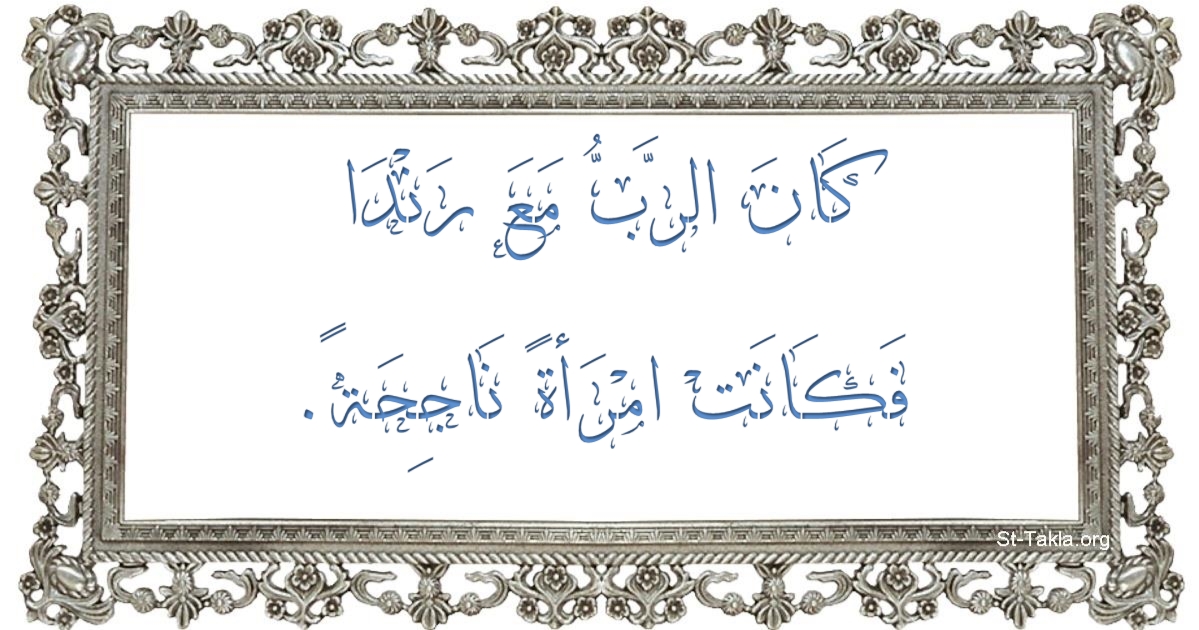 كَانَ الرَّبُّ مَعَ رَنْدَا
فَكَانَتْ امْرَأةً نَاجِحَةً.
St-Takla.org